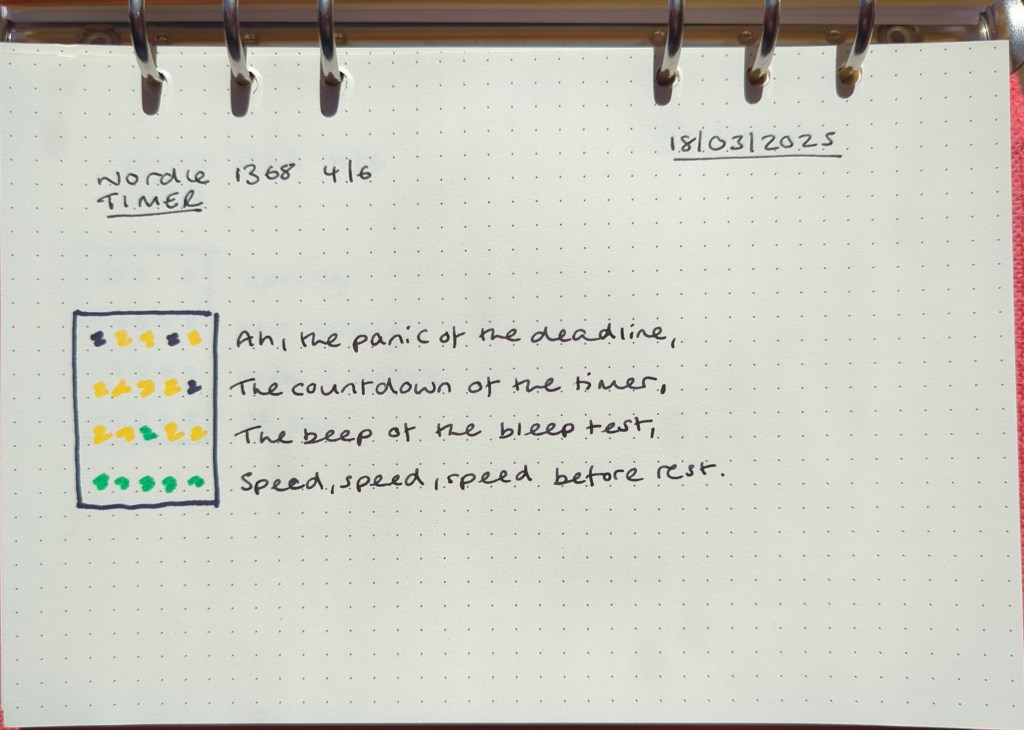 18/03/2025
Wordle 1368 4/6
TIMER
Ah, the panic of the deadline,
The countdown of the timer,
The beep of the bleep test,
Speed, speed, speed before rest.